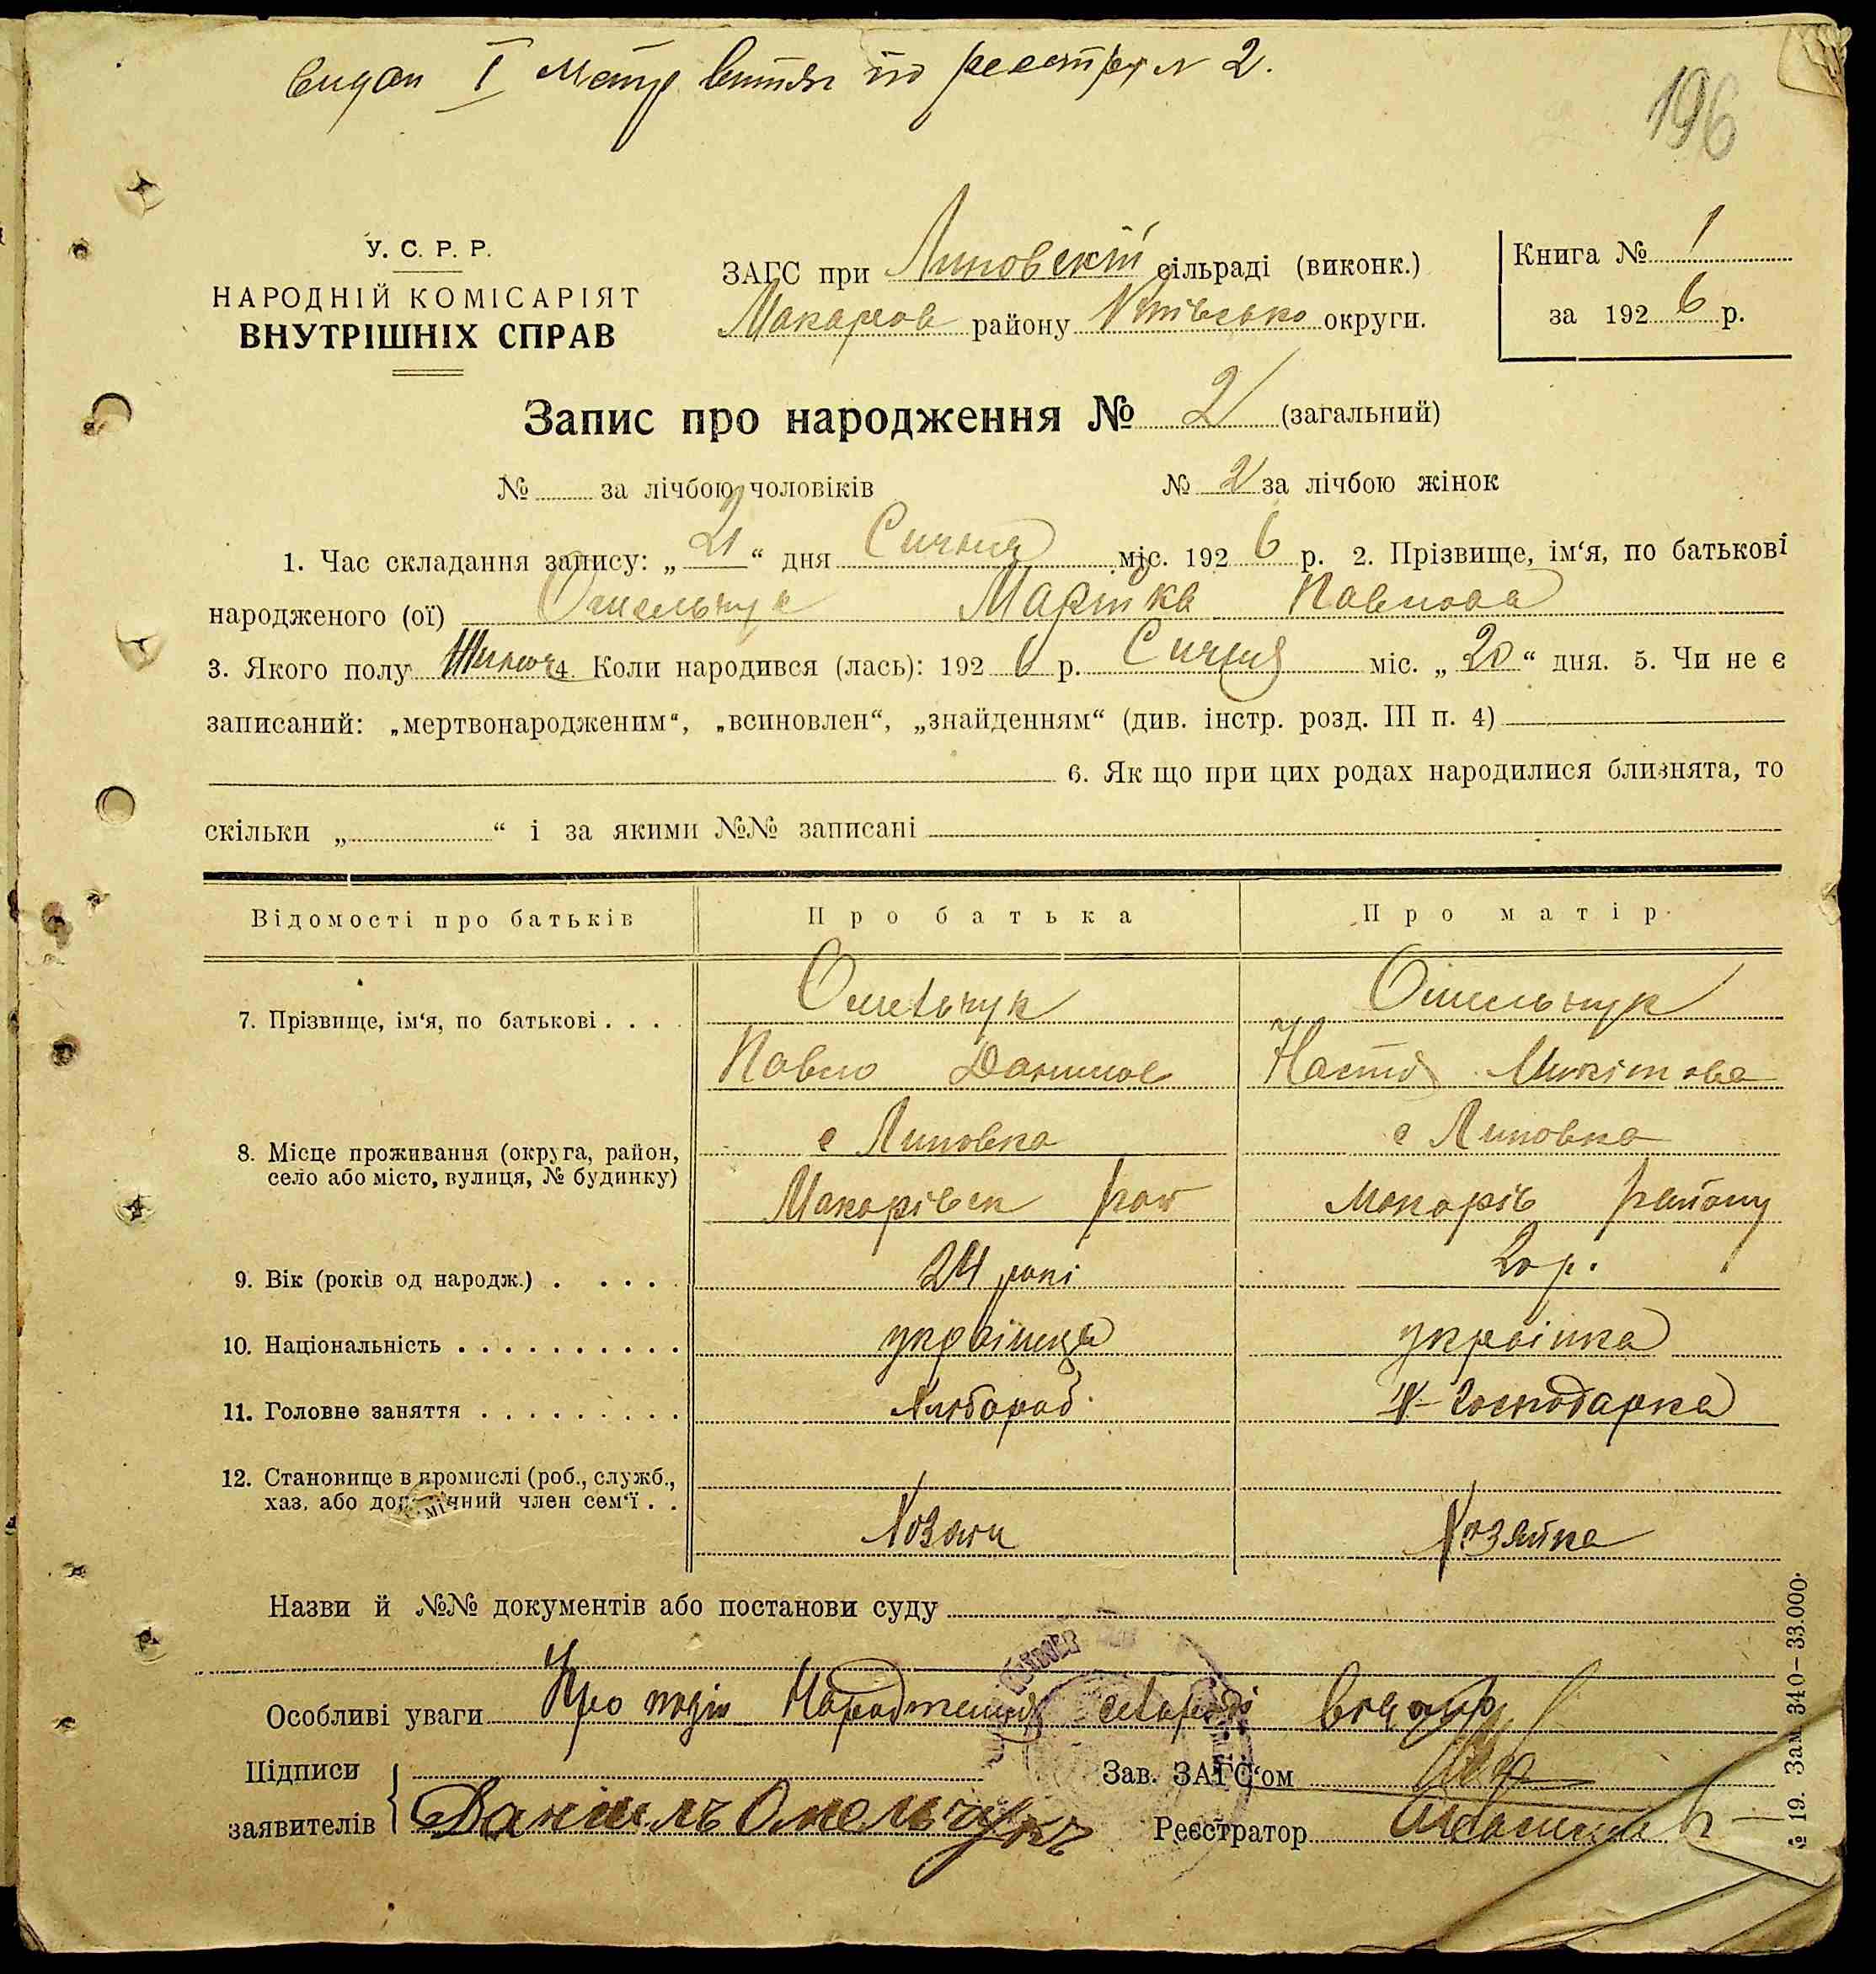 196
У. С. Р. Р.
НАРОДНІЙ КОМІСАРІЯТ
ВНУТРІШНІХ СПРАВ
ЗАГС при Липовскій сільраді (виконк.)
Макаров району Київсько округи.
Книга № 1
за 1926 р.
Запис про народження № 2 (загальний)
№ за лічбою чоловіків № 2 за лічбою жінок
1. Час складання запису: „21“ дня Січня міс. 1926 р. 2. Прізвище, ім‘я, по батькові
народженого (ої) Омельчук Марійка Павлова
3. Якого полу Жіноч 4. Коли народився (лась): 1926 р. Січня міс. „20“ дня. 5. Чи не є
записаний: „мертвонародженим“, „всиновлен“, „знайденням“ (див. інстр. розд. III п. 4)
6. Як що при цих родах народилися близнята, то
скільки „ “ і за якими №№ записані
Відомості про батьків Про батька Про матір
7. Прізвище, ім‘я, по батькові . . . . Омельчук Омельчук
Павло Данилов Настя Микітова
8. Місце проживання (округа, район, с Липовка с Липовка
село або місто, вулиця, № будинку) Макарівск рай Макарів району
9. Вік (років од народж.) . . . . . 24 рокі 20 р.
10. Національність . . . . . . . . . . українець українка
11. Головне заняття . . . . . . . . . Хлібороб Господарка
12. Становище в промислі (роб., служб.,
хаз. або допомічний член сем‘ї . . Хозяін Хозяйка
Назви й №№ документів або постанови суду
Особливі уваги Про подію Народження
Підписи Зав. ЗАГС‘ом
заявителів Даніилъ Омельчукъ Реєстратор
№ 19. Зам. 340–33.000.